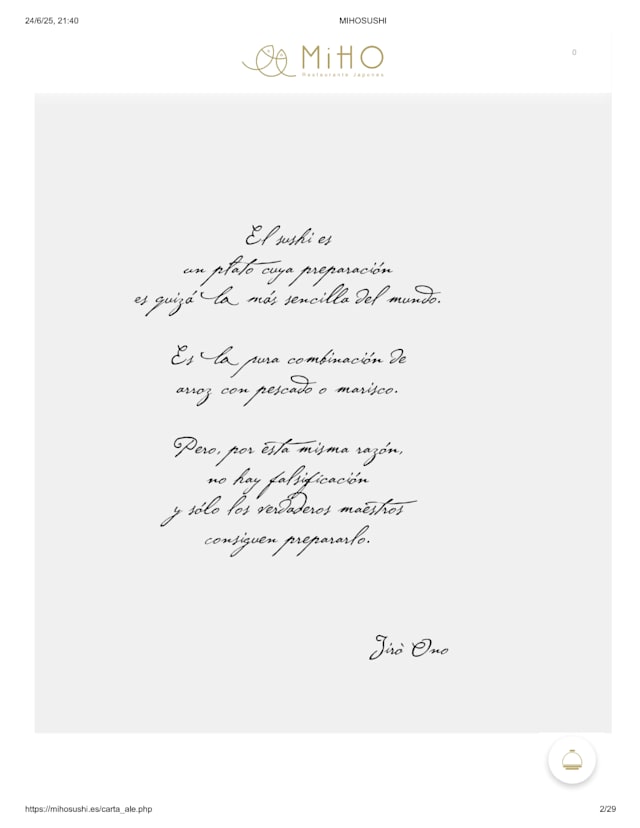 24/6/25, 21:40
MIHOSUSHI
MiHO
Restaurante Japones
0
El sushi es
un plato cuya preparación
es quizá la más sencilla del mundo.
Es la pura combinación de
arroz con pescado o marisco.
Pero, por esta misma razón,
no hay falsificación
y sólo los verdaderos maestros
consiguen prepararlo.
Jirò Ono
https://mihosushi.es/carta_ale.php
2/29